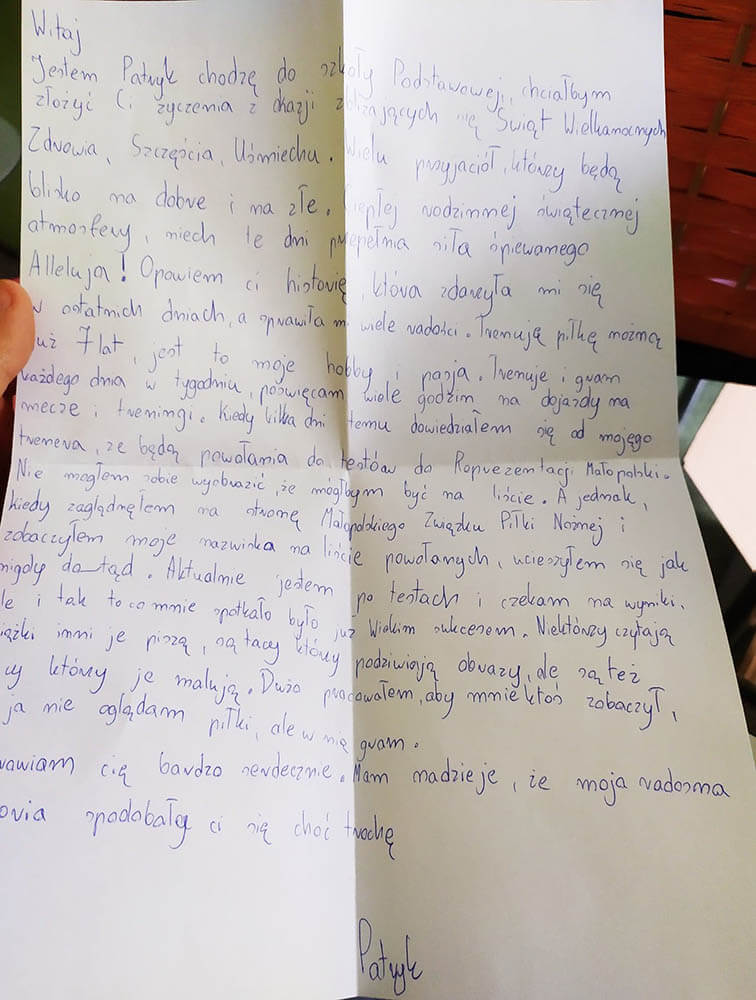 Witaj
Jestem Patryk chodzę do szkoły Podstawowej, chciałbym
złożyć Ci życzenia z okazji zbliżających się Świąt Wielkanocnych
Zdrowia, Szczęścia, Uśmiechu. Wielu przyjaciół, którzy będą
blisko na dobre i na złe. Ciepłej rodzinnej świątecznej
atmosfery, niech te dni przepełnia siła śpiewanego
Alleluja! Opowiem ci historię, która zdarzyła mi się
w ostatnich dniach, a sprawiła mi wiele radości. Trenują piłkę nożną
już 7 lat, jest to moje hobby i pasja. Trenuje i gram
każdego dnia w tygodniu, poświęcam wiele godzin na dojazdy na
mecze i treningi. Kiedy kilka dni temu dowiedziałem się od mojego
trenera, że będą powołania do testów do Reprezentacji Małopolski.
Nie mogłem sobie wyobrazić, że mógłbym być na liście. A jednak,
kiedy zaglądnęłem na stronę Małopolskiego Związku Piłki Nożnej i
zobaczyłem moje nazwiska na liście powołanych, ucieszyłem się jak
nigdy do tąd. Aktualnie jestem po testach i czekam na wyniki.
le i tak to co mnie spotkało było już Wielkim sukcesem. Niektórzy czytają
iążki inni je piszą, są tacy którzy podziwiają obrazy, ale są też
cy którzy je malują. Dużo pracowałem, aby mnie ktoś zobaczył,
ja nie oglądam piłki, ale w nią gram.
rawiam cię bardzo serdecznie. Mam nadzieje, że moja radosna
oria spodobały ci się choć trochę
Patryk